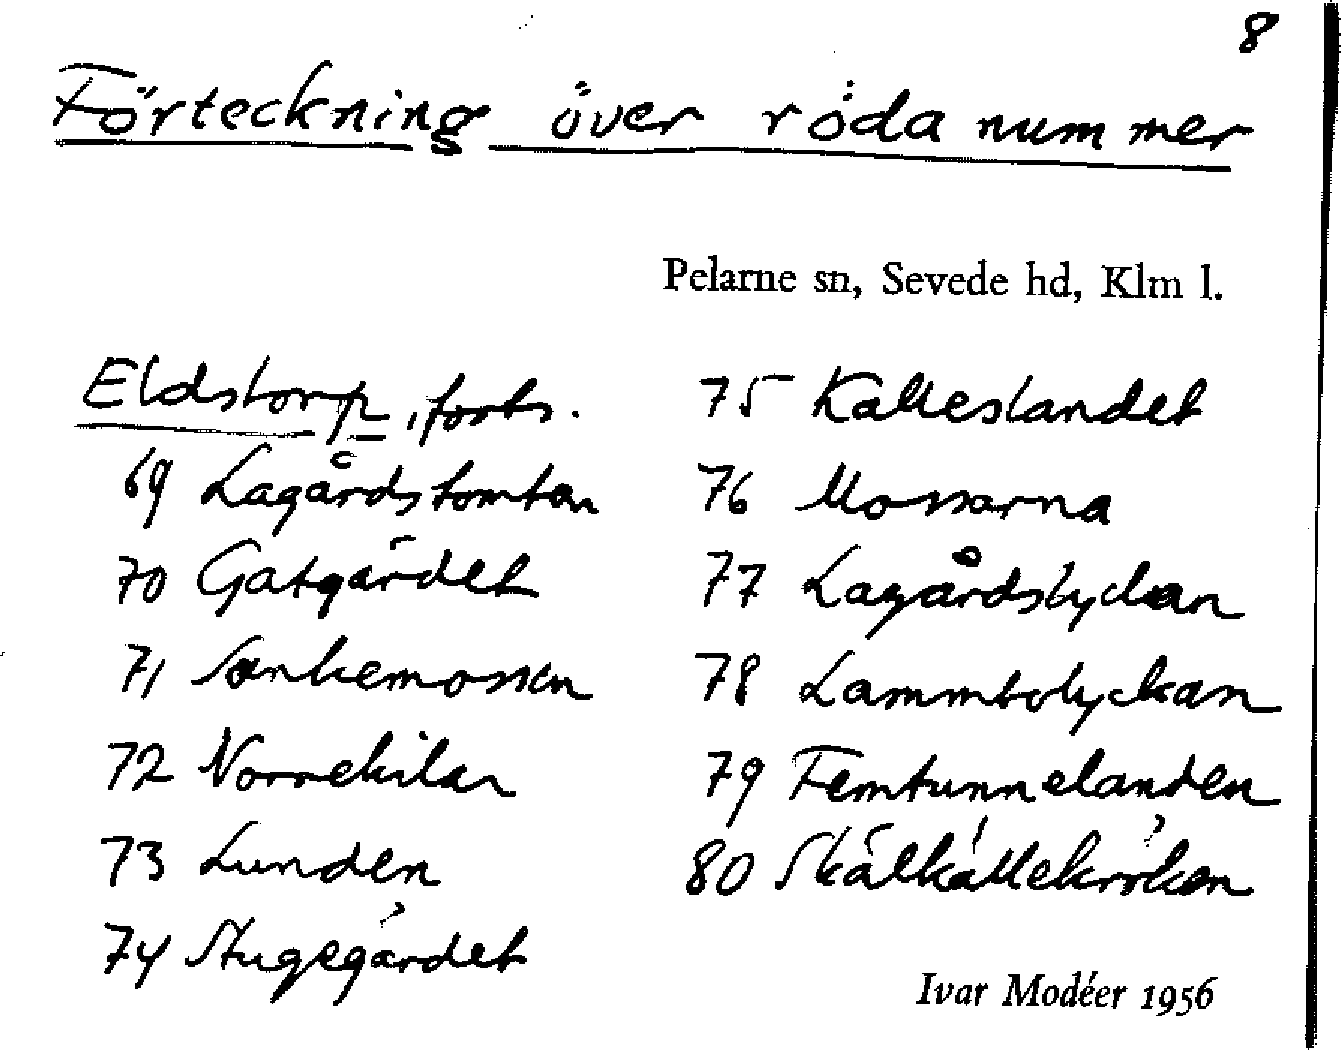 8
Förteckning över röda nummer
Pelarne sn, Sevede hd, Klm l.
Eldstorp, forts.
69 Lagårdstomten
70 Gatgärdet
71 Sankemossen
72 Norrekilar
73 Lunden
74 Stugegärdet
75 Kalleslandet
76 Mossarna
77 Lagårdslyckan
78 Lammbolyckan
79 Femtunnelanden
80 Skälkällekröken
Ivar Modéer 1956